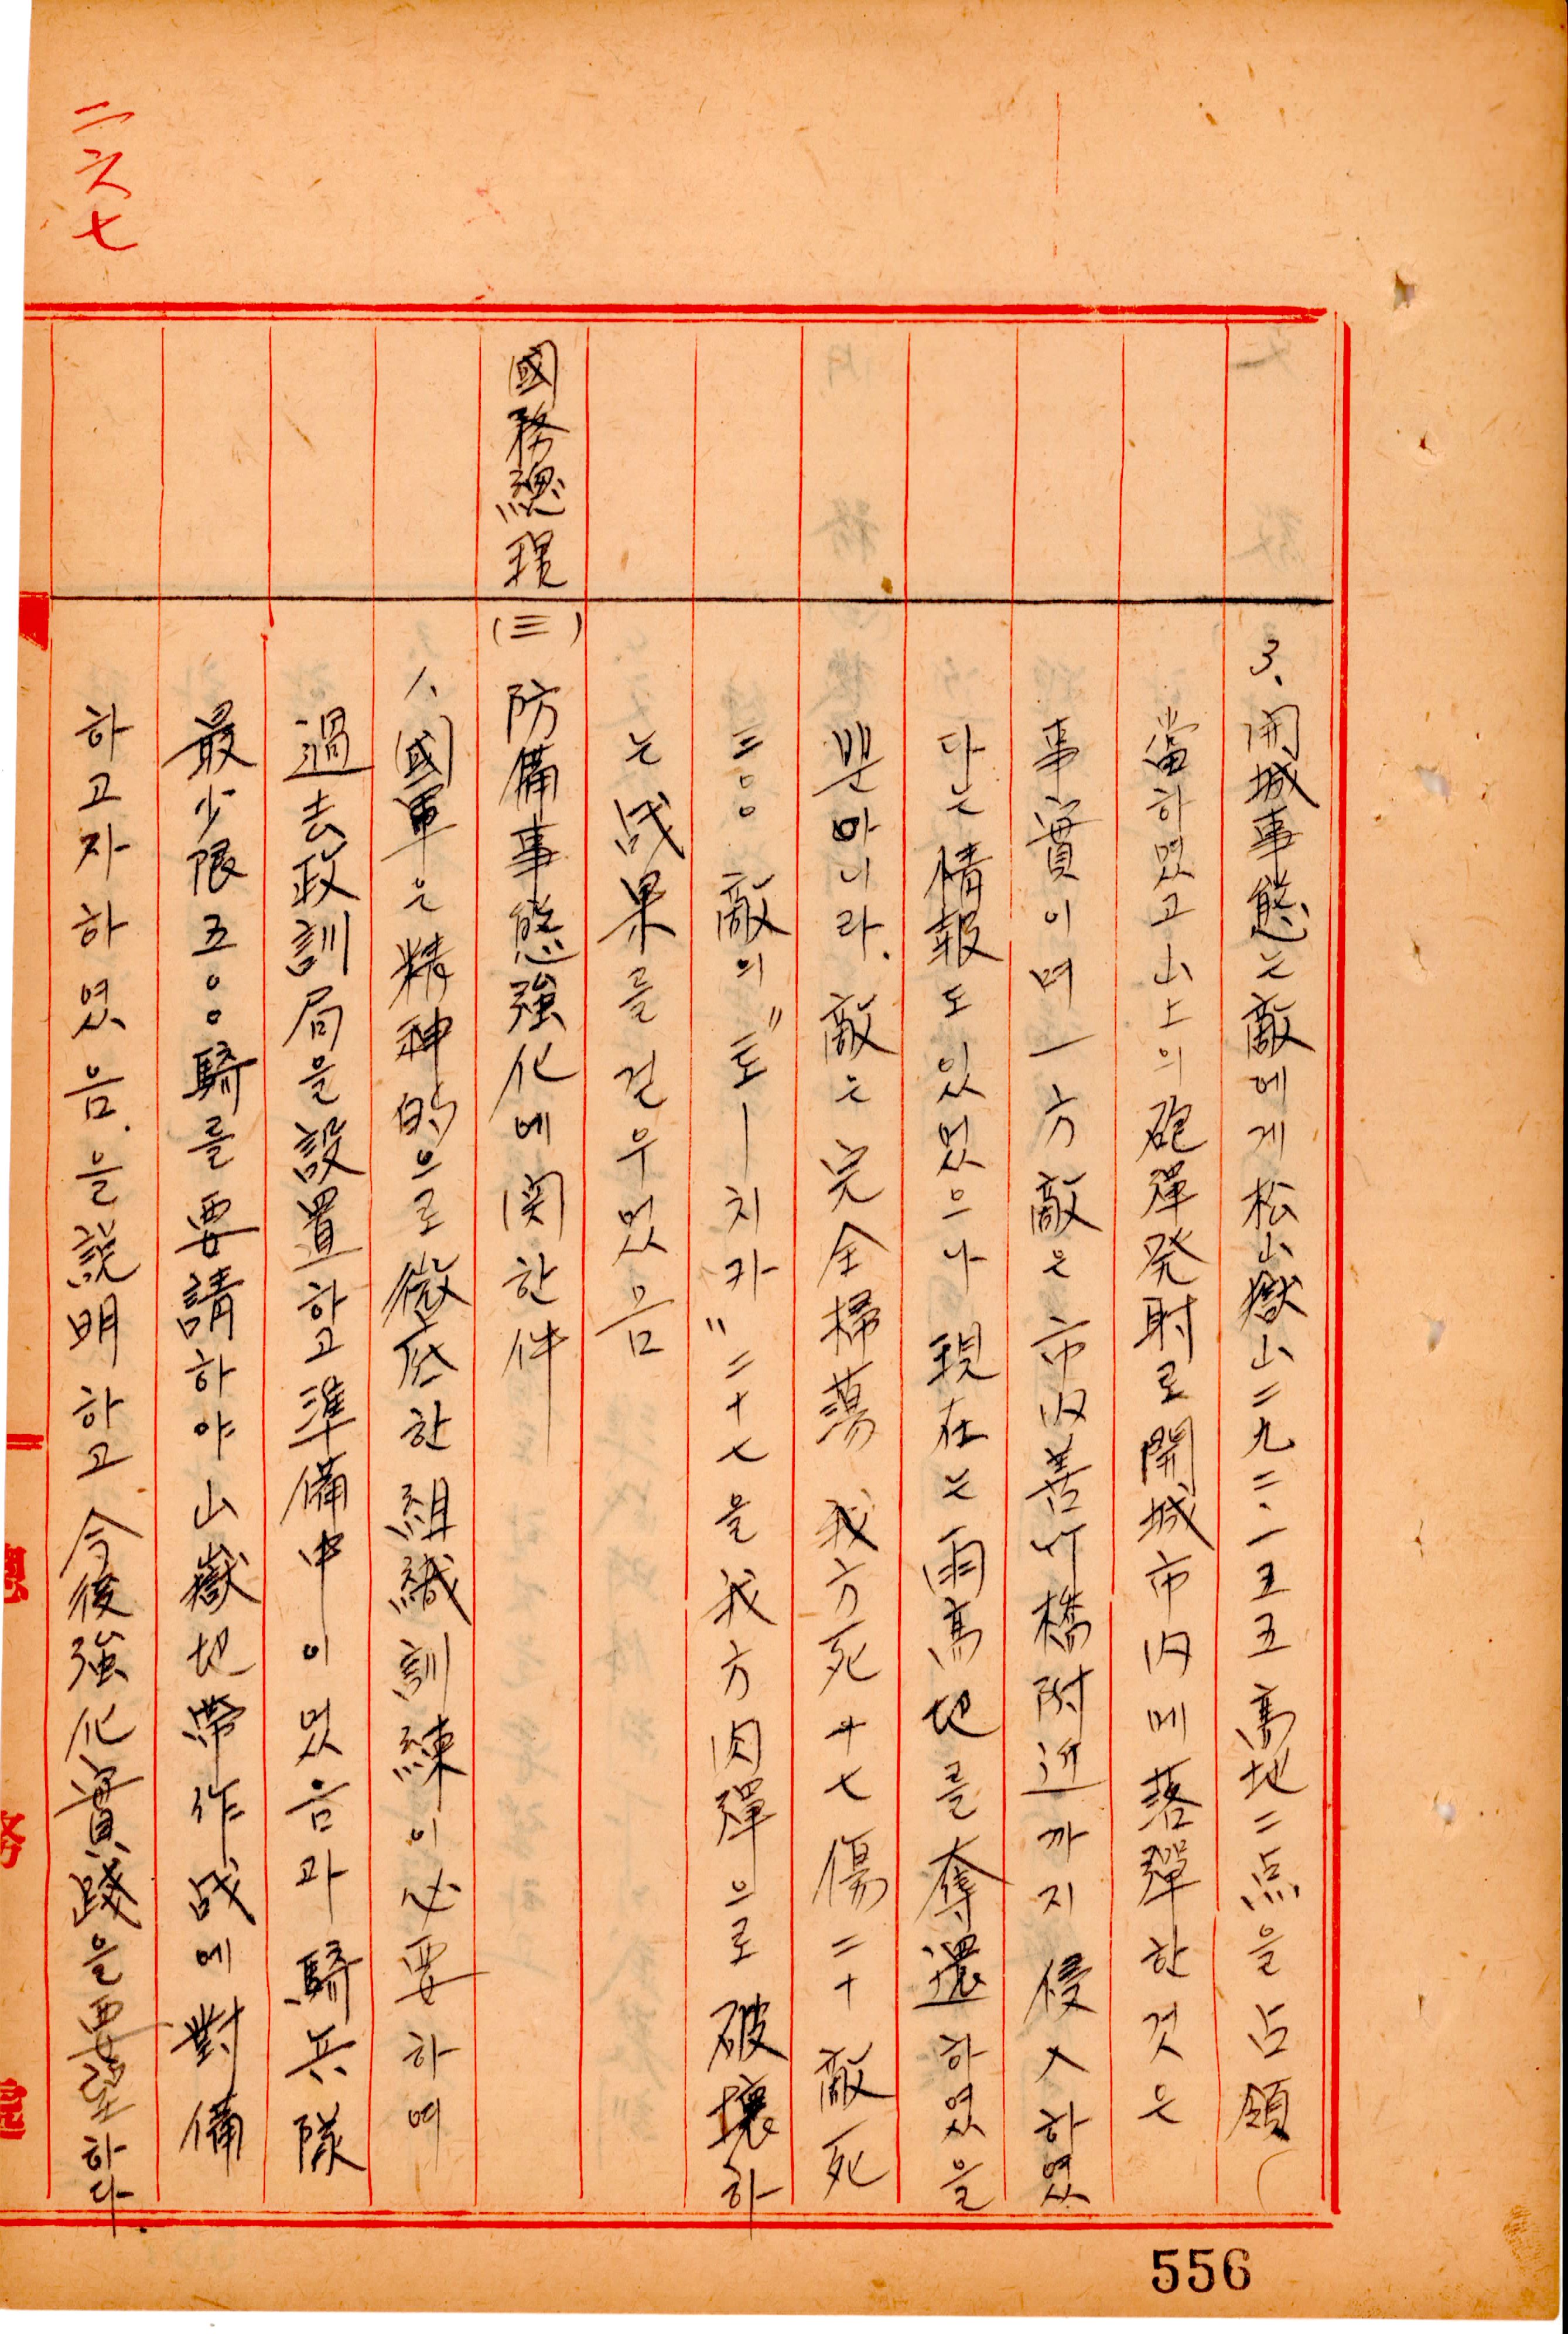 二六七
3、開城事態는 敵에게 松山嶽山 二九二、一五五 高地 二点을 占領
當하였고 山上의 砲彈発射로 開城市内에 落彈한 것은
事實이며 一方 敵은 市内善竹橋附近까지 侵入하였
다는 情報도 있었으나 現在는 雨高地를 奪還하였을
뿐마니라. 敵은 完全掃蕩 我方死 十七 傷二十 敵死
三〇〇 敵의 "토ー치카" 二十七을 我方肉彈으로 破壞하
는 战果를 걷우었음
國務總理 (三) 防備事態強化에 関한 件
1、國軍은 精神的으로 徵底한 組織訓練이 必要하며
過去政訓局을 設置하고 準備中이었음과 騎兵隊
最少限五〇〇騎를 要請하야 山嶽地帶作战에 對備
하고자 하였음.을 說明하고 今後強化實踐을 要望하다.
556